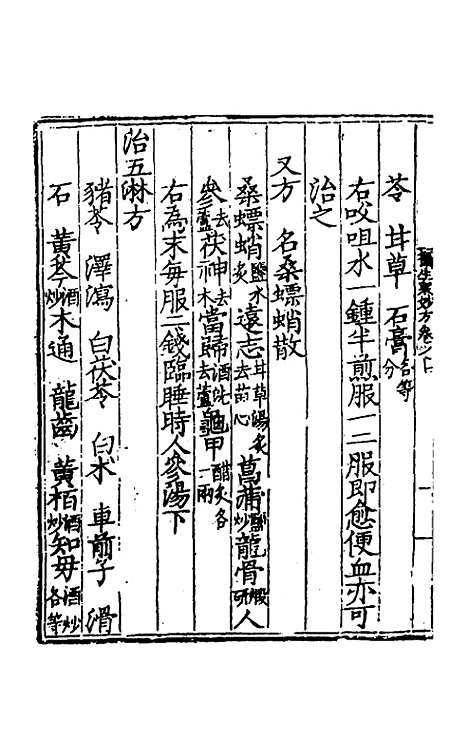 攝生衆妙方卷之上
苓 甘草 石膏各等分
右㕮咀水一鍾半煎服一二服即愈便血亦可
治之
又方 名桑螵蛸散
桑螵蛸鹽水炙遠志甘草湯炙去苗心菖蒲鹽炒龍骨煅研人
參去蘆茯神去木當歸酒洗去蘆龜甲醋炙各一兩
右為末每服二錢臨睡時人參湯下
治五淋方
豬苓 澤瀉 白茯苓 白朮 車前子 滑
石 黃芩酒炒木通 龍齒 黃柏酒炒知母酒炒各等